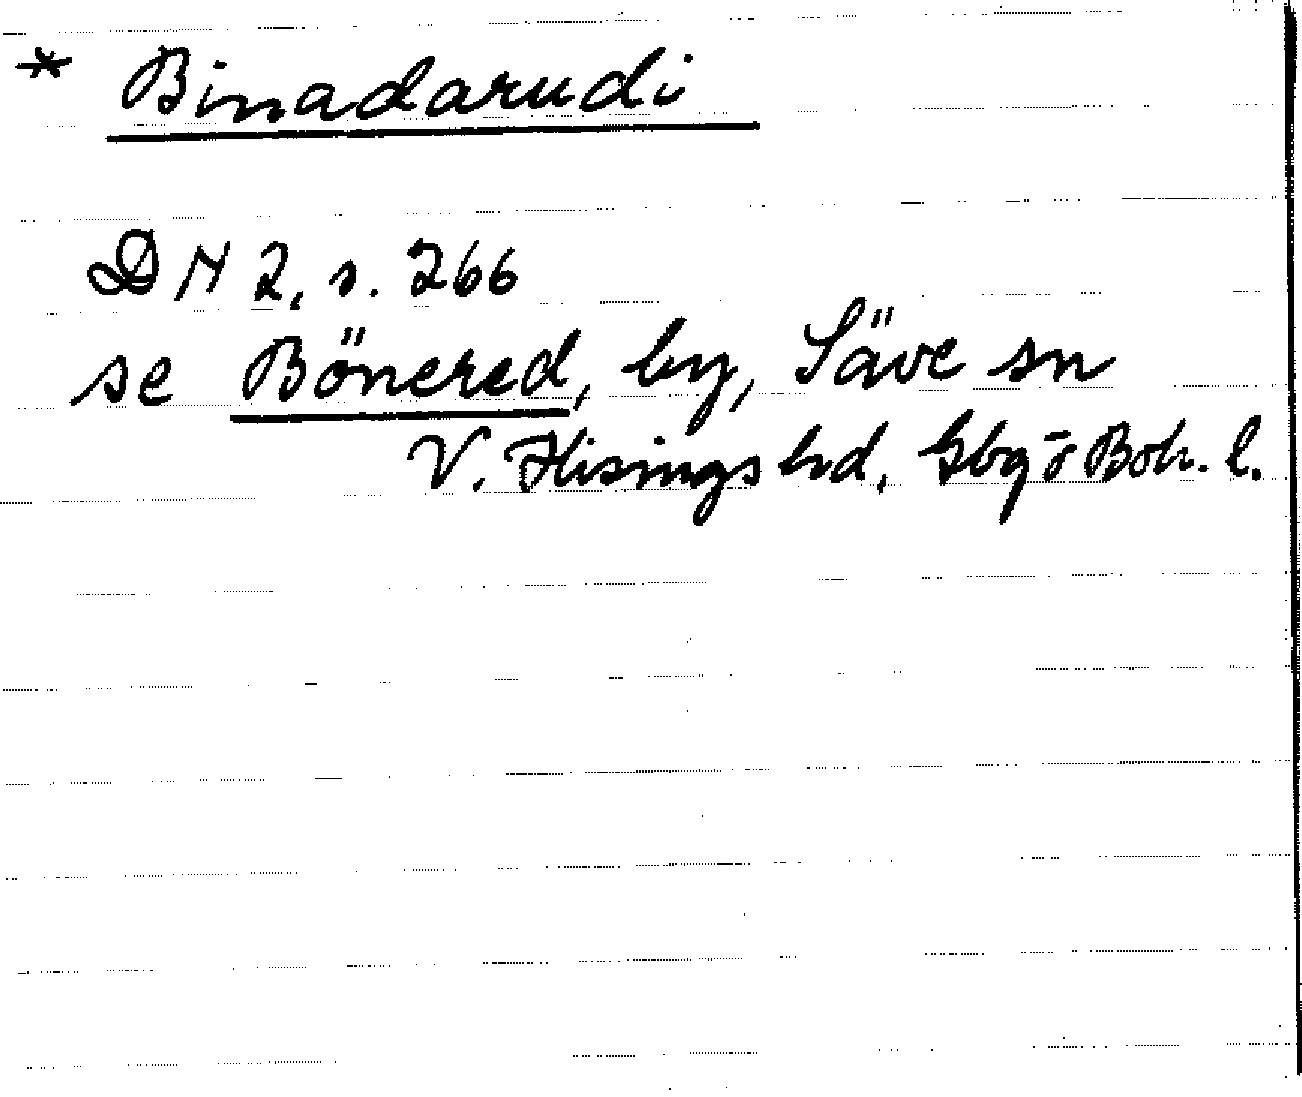 * Binadarudi
DN 2, s. 266
se Bönered, by, Säve sn
V. Hisings hd, Gbg o Boh. l.